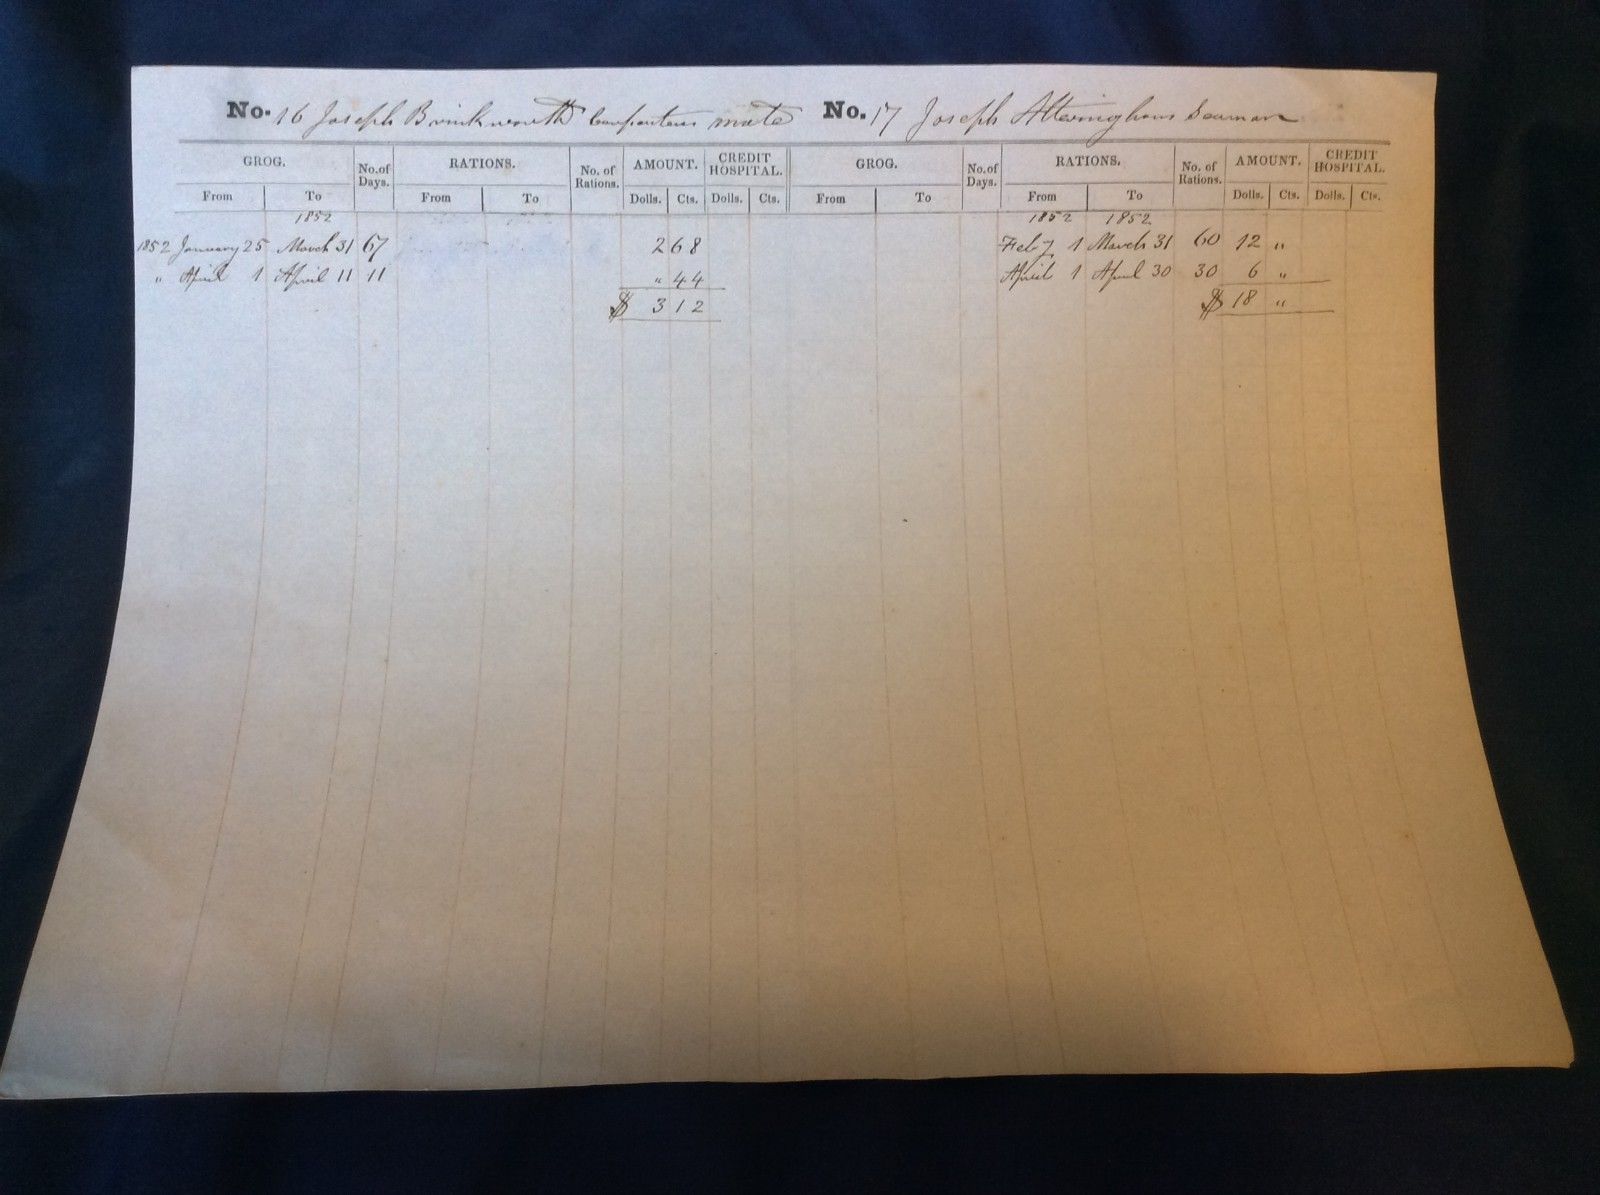 No. 16 Joseph Brinkworth Carpenters mate No. 17 Joseph Alteringham Seaman
GROG. No. of Days. RATIONS. No. of Rations. AMOUNT. CREDIT HOSPITAL. GROG. No. of Days. RATIONS. No. of Rations. AMOUNT. CREDIT HOSPITAL.
From To From To Dolls. Cts. Dolls. Cts. From To From To Dolls. Cts. Dolls. Cts.
1852 1852 1852
1852 January 25 March 31 67 2 68 Feby 1 March 31 60 12 "
" April 1 April 11 11 " 44 April 1 April 30 30 6 "
$ 3 12 $ 18 "